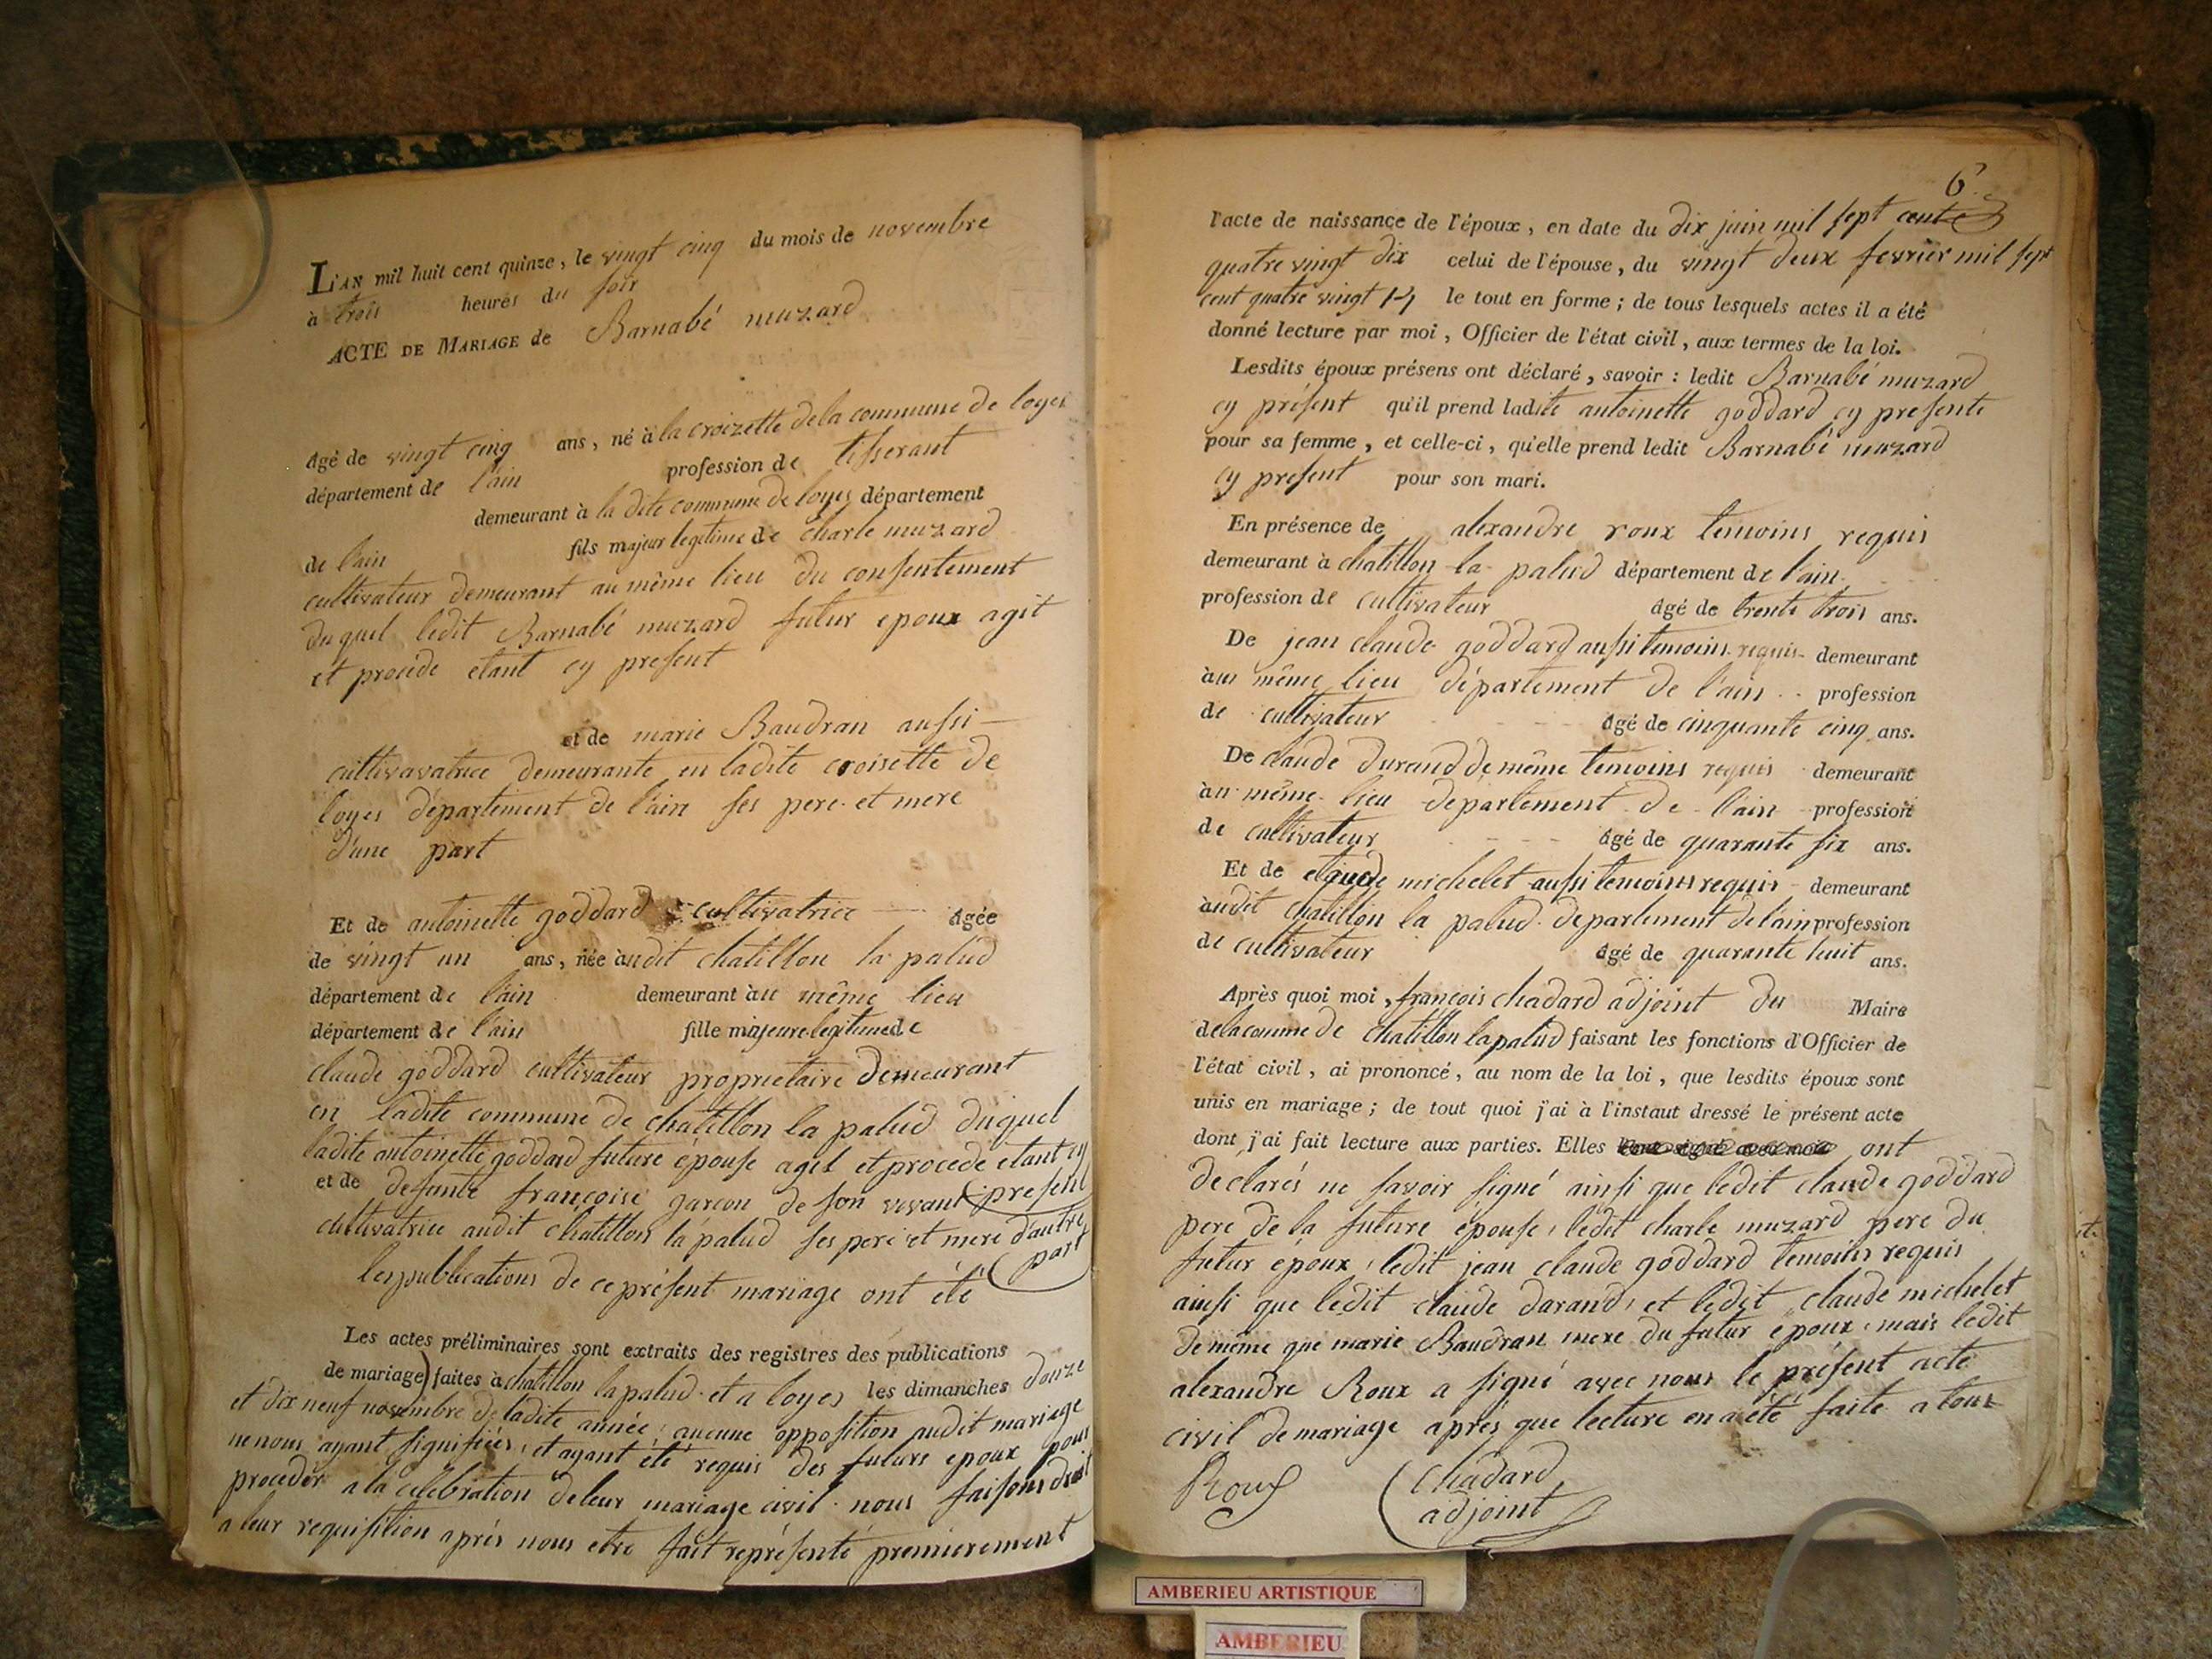 L'AN mil huit cent quinze, le vingt cinq du mois de novembre
à trois heures du soir
ACTE DE MARIAGE de Barnabé muzard
âgé de vingt cinq ans, né à la croizette dela commune de loyes
département de l'ain profession de tisserant
demeurant à la dite commune de loyes département
de l'ain fils majeur legitime de charle muzard
cultivateur demeurant au même lieu du consentement
duquel ledit Barnabé muzard futur epoux agit
et procede etant cy present
et de marie Baudran aussi
cultivavatrice demeurante en ladite croisette de
loyes département de l'ain ses pere et mere
d'une part
Et de antoinette goddard cultivatrice âgée
de vingt un ans, née àudit chatillon la palud
département de l'ain demeurant àu même lieu
département de l'ain fille majeure legitime de
claude goddard cultivateur proprietaire demeurant
en ladite commune de chatillon la palud duquel
ladite antoinette goddard future épouse agit et procede etant cy
present
et de defunte françoise garcon de son vivant
cultivatrice audit chatillon la palud ses pere et mere d'autre
part
les publications de ce présent mariage ont été
Les actes préliminaires sont extraits des registres des publications
de mariage) faites à chatillon la palud et a loyes les dimanches douze
et dix neuf novembre de ladite année, aucune opposition audit mariage
ne nous ayant signifiées, et ayant été requis des futurs epoux pour
proceder a la celebration de leur mariage civil nous faisons droit
a leur requisition aprés nous etre fait représenté premierement
6
l'acte de naissance de l'époux, en date du dix juin mil sept cent
quatre vingt dix celui de l'épouse, du vingt deux fevrier mil sept
cent quatre vingt 14 le tout en forme; de tous lesquels actes il a été
donné lecture par moi, Officier de l'état civil, aux termes de la loi.
Lesdits époux présens ont déclaré, savoir : ledit Barnabé muzard
cy présent qu'il prend ladite antoinette goddard cy presente
pour sa femme, et celle-ci, qu'elle prend ledit Barnabé muzard
cy present pour son mari.
En présence de alexandre roux temoins requis
demeurant à chatillon la palud département de l'ain
profession de cultivateur âgé de trente trois ans.
De jean claude goddard aussi temoins requis demeurant
àu même lieu département de l'ain profession
de cultivateur âgé de cinquante cinq ans.
De claude durand de même temoins requis demeurant
àu même lieu departement de l'ain profession
de cultivateur âgé de quarante six ans.
Et de claude michelet aussi temoins requis demeurant
àudit chatillon la palud departement de l'ain profession
de cultivateur âgé de quarante huit ans.
Après quoi moi, françois chadard adjoint du Maire
de la comme de chatillon la palud faisant les fonctions d'Officier de
l'état civil, ai prononcé, au nom de la loi, que lesdits époux sont
unis en mariage; de tout quoi j'ai à l'instant dressé le présent acte
dont j'ai fait lecture aux parties. Elles ont
declarés ne savoir signé ainsi que ledit claude goddard
pere de la future épouse, ledit charle muzard pere du
futur époux, ledit jean claude goddard temoins requis
ainsi que ledit claude darand, et ledit claude michelet
de même que marie Baudran mere du futur époux, mais ledit
alexandre Roux a signé avec nous le présent acte
civil de mariage aprés que lecture en a été faite a tous
Roux
chadard
adjoint
AMBERIEU ARTISTIQUE
AMBERIEU